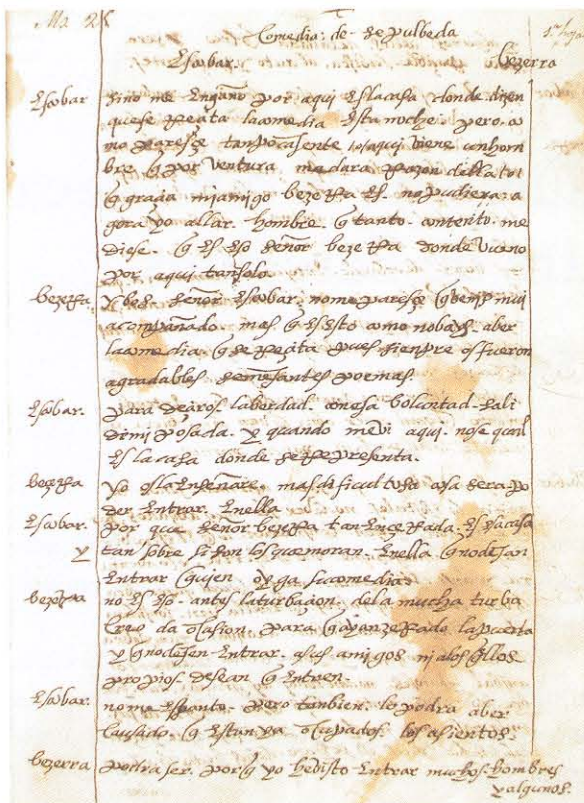 Comedia: de Sepulbeda
Escobar. bezerra
Escobar sino me Engaño por aqui Es la casa donde dizen
que se Reçita la comedia Esta noche. pero. a
mo paresçe tan poca jente
bre q por ventura me dara Razon della
q graçia mi amigo bezeRa Es. no pudiera. a
gora yo allar. hombre q tanto. contento. me
diese. q Es Eso señor bezeRa donde bueno
por aqui tan solo.
bezeRa. señor Escobar. no me paresçe q benis mui
acompañado. mas q Es Esto como no bays. aber
la comedia. q se Reçita pues sienpre os fueron
agradables. semejantes poemas.
Escobar. para deziros la berdad. con esa boluntad. sali
de mi posada. y quando me vi aqui. no se qual
Es la casa donde se Representa.
bezeRa yo os la Enseñare. mas dificultosa cosa sera po
der Entrar. Enella
Escobar. por que señor bezeRa tan EnceRada. Es la casa
y tan sobre si son los que moran. Enella q no dejan
Entrar quien oyga su comedia.
bezeRa no Es Eso. antes la turbaçion. de la mucha turba
creo da ocasion. para q ayan zeRado la puerta
y q no dejen Entrar. a sus amigos ni a los q Ellos
propios desean q Entren.
Escobar. no me Espanto. pero tanbien. lo podra aber
causado. q Estan ya ocupados. los asientos.
bezerra podra ser. porq yo he bisto Entrar muchos. hombres
y algunos.